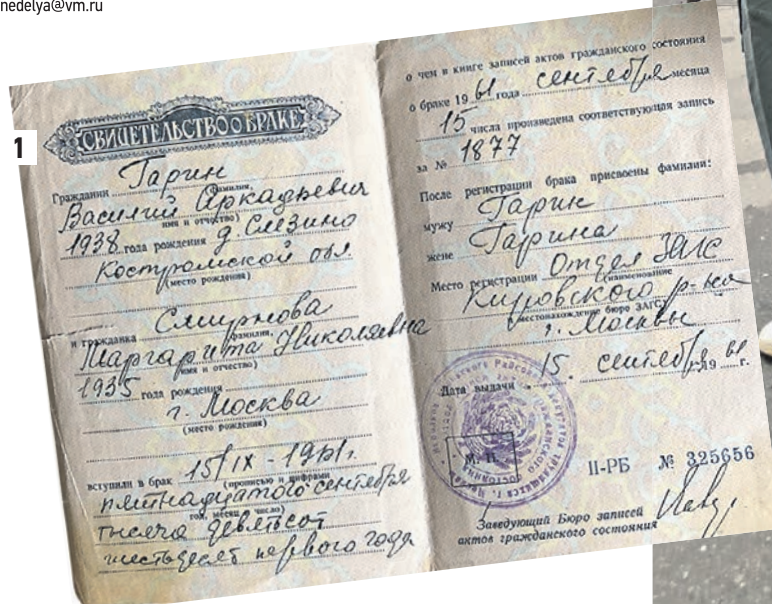 nedelya@vm.ru
1
СВИДЕТЕЛЬСТВО О БРАКЕ
Гражданин Гарин
фамилия,
Василий Аркадьевич
имя и отчество)
1938 года рождения д. Слезино
Костромской обл.
(место рождения)
и гражданка Смирнова
фамилия,
Маргарита Николаевна
имя и отчество)
1935 года рождения
г. Москва
(место рождения)
вступили в брак 15/IX - 1961г.
(прописью и цифрами
пятнадцатого сентября
год, месяц число)
тысяча девятьсот
шестьдесят первого года
о чем в книге записей актов гражданского состояния
о браке 1961 года сентября месяца
15 числа произведена соответствующая запись
за № 1877
После регистрации брака присвоены фамилии:
мужу Гарин
жене Гарина
Место регистрации Отдел ЗАГС
(наименование
Кировского р-на
местонахождение бюро ЗАГС)
г. Москвы
Дата выдачи 15. сентября 1961 г.
М. П.
II-РБ № 325656
Заведующий Бюро записей
актов гражданского состояния